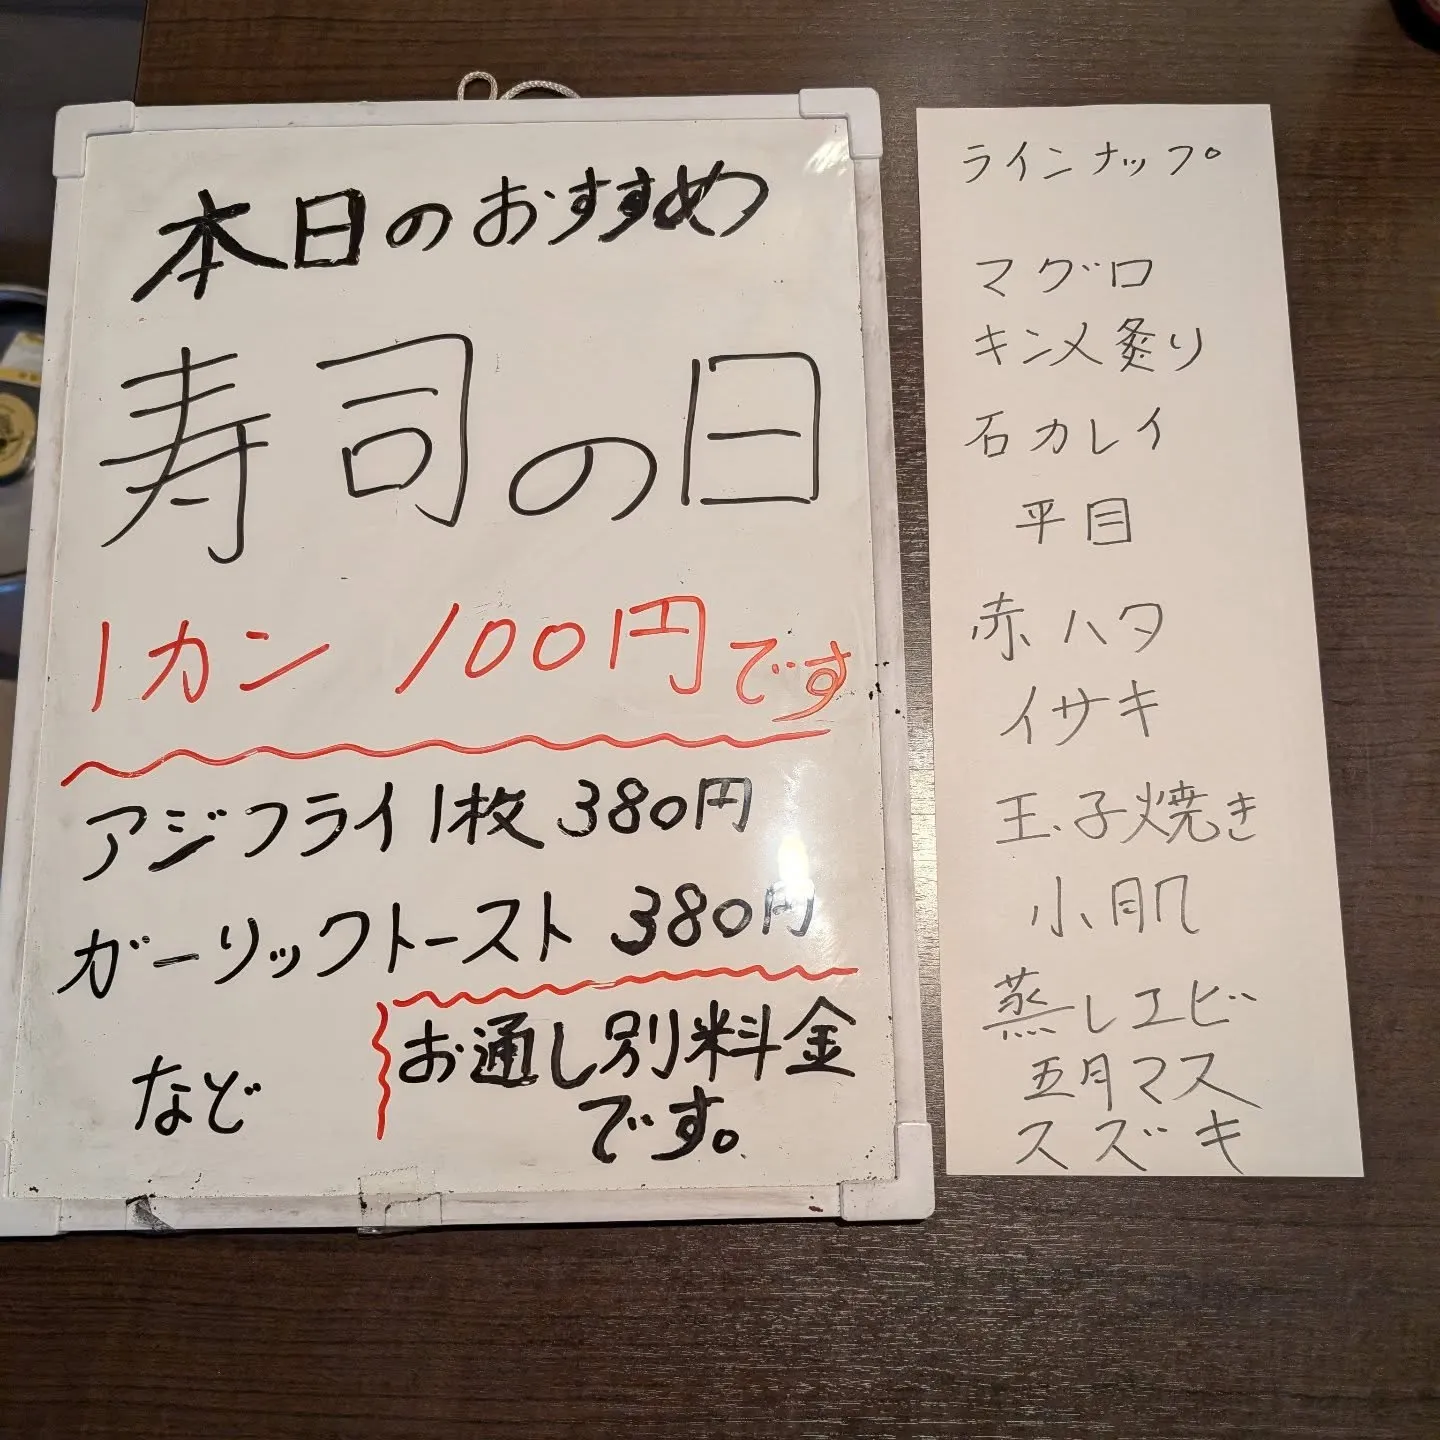 本日のおすすめ
寿司の日
1カン 100円です
アジフライ1枚 380円
ガーリックトースト 380円
など
お通し別料金
です。
ラインナップ
マグロ
キンメ炙り
石カレイ
平目
赤ハタ
イサキ
玉子焼き
小肌
蒸しエビ
五月マス
スズキ